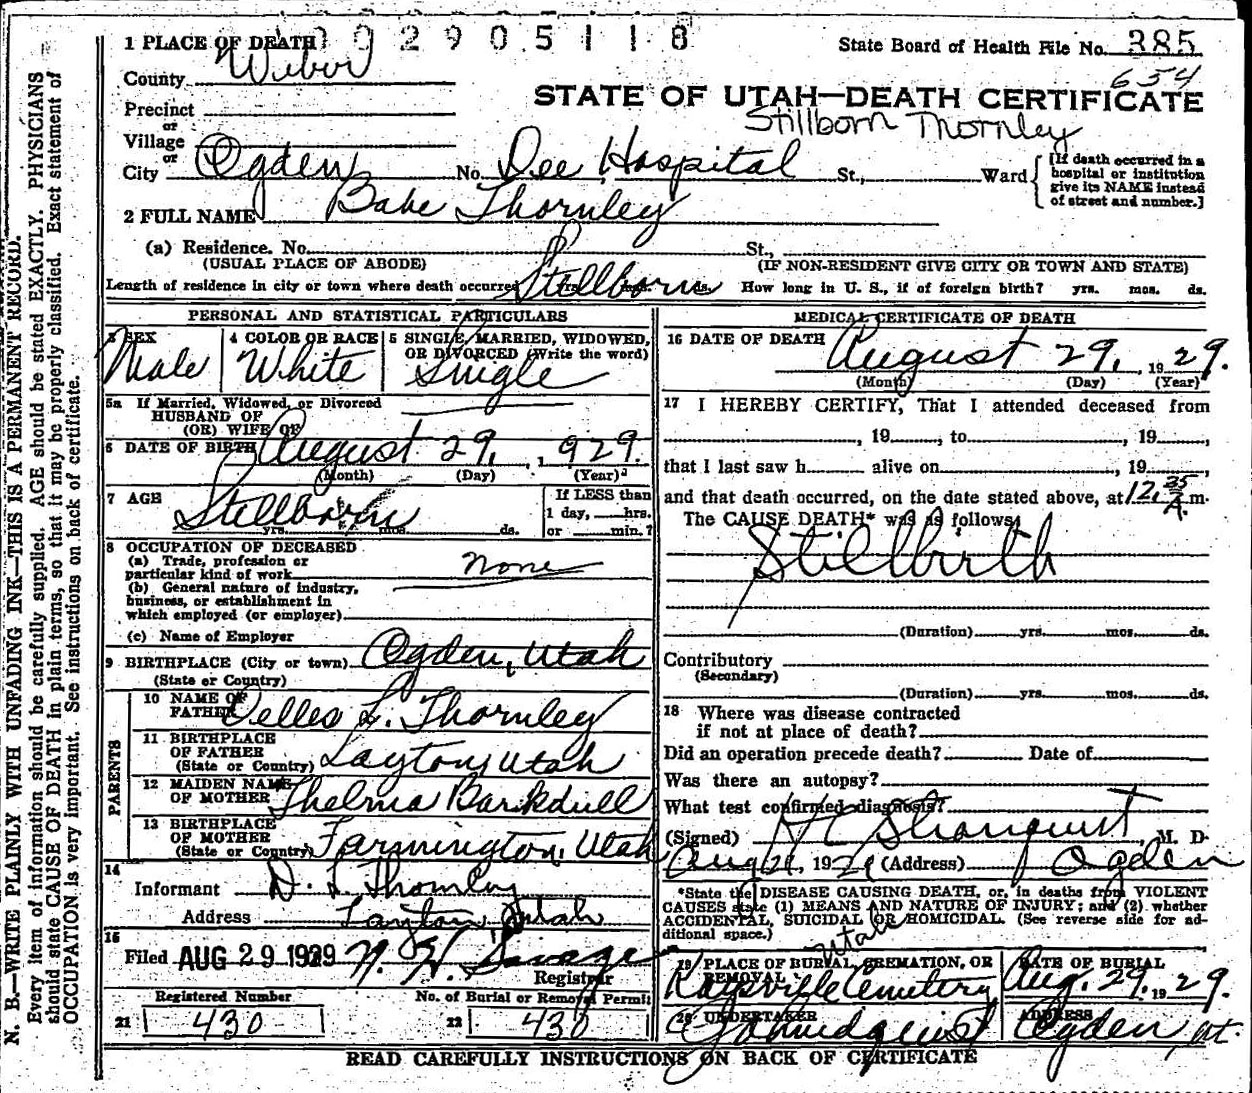 002905118
1 PLACE OF DEATH
State Board of Health File No. 385
654
County Weber
STATE OF UTAH—DEATH CERTIFICATE
Stillborn Thornley
Precinct
or
Village
or
City Ogden No. Dee Hospital St., Ward
[If death occurred in a
hospital or institution
give its NAME instead
of street and number.]
2 FULL NAME Babe Thornley
(a) Residence. No. St.,
(USUAL PLACE OF ABODE) (IF NON-RESIDENT GIVE CITY OR TOWN AND STATE)
Length of residence in city or town where death occurred Stillborn yrs. mos. ds. How long in U. S., if of foreign birth? yrs. mos. ds.
PERSONAL AND STATISTICAL PARTICULARS
3 SEX 4 COLOR OR RACE 5 SINGLE, MARRIED, WIDOWED,
OR DIVORCED (Write the word)
Male White Single
5a If Married, Widowed, or Divorced
HUSBAND OF
(OR) WIFE OF
6 DATE OF BIRTH August 29, 1929.
(Month) (Day) (Year)
7 AGE Stillborn
yrs. mos. ds.
If LESS than
1 day, hrs.
or min.?
8 OCCUPATION OF DECEASED
(a) Trade, profession or
particular kind of work none
(b) General nature of industry,
business, or establishment in
which employed (or employer)
(c) Name of Employer
9 BIRTHPLACE (City or town) Ogden, Utah
(State or Country)
PARENTS
10 NAME OF
FATHER Delles L. Thornley
11 BIRTHPLACE
OF FATHER
(State or Country) Layton, Utah
12 MAIDEN NAME
OF MOTHER Thelma Barkdull
13 BIRTHPLACE
OF MOTHER
(State or Country) Farmington, Utah
14
Informant D. L. Thornley
Address Layton, Utah
15
Filed AUG 29 1929 N. H. Savage
Registrar
Registered Number No. of Burial or Removal Permit
21 430 22 430
MEDICAL CERTIFICATE OF DEATH
16 DATE OF DEATH August 29, 1929.
(Month) (Day) (Year)
17 I HEREBY CERTIFY, That I attended deceased from
, 19 , to , 19 ,
that I last saw h alive on , 19 ,
and that death occurred, on the date stated above, at 12.35 A.m.
The CAUSE DEATH* was as follows
Stillbirth
(Duration) yrs. mos. ds.
Contributory
(Secondary)
(Duration) yrs. mos. ds.
18 Where was disease contracted
if not at place of death?
Did an operation precede death? Date of
Was there an autopsy?
What test confirmed diagnosis?
(Signed) Stranquist, M. D.
Aug 29, 1929 (Address) Ogden
*State the DISEASE CAUSING DEATH, or, in deaths from VIOLENT
CAUSES state (1) MEANS AND NATURE OF INJURY; and (2) whether
ACCIDENTAL, SUICIDAL OR HOMICIDAL. (See reverse side for ad-
ditional space.)
Utah
19 PLACE OF BURIAL, CREMATION, OR
REMOVAL
Kaysville Cemetery
DATE OF BURIAL
Aug. 29. 1929.
20 UNDERTAKER
ADDRESS
Ogden, Ut.
READ CAREFULLY INSTRUCTIONS ON BACK OF CERTIFICATE
N. B.—WRITE PLAINLY WITH UNFADING INK—THIS IS A PERMANENT RECORD.
Every item of information should be carefully supplied. AGE should be stated EXACTLY. PHYSICIANS
should state CAUSE OF DEATH in plain terms, so that it may be properly classified. Exact statement of
OCCUPATION is very important. See instructions on back of certificate.